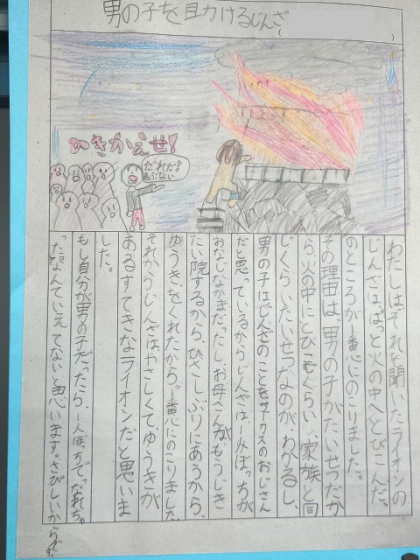 男の子を助けるじんざ
ひきかえせ!
だれだよ
あぶない
わたしはそれを聞いたライオンの
じんざは、ぱっと火の中へとびこんだ。
のところが一番心にのこりました。
その理由は、男の子がたいせつだか
ら、火の中にとびこむくらい、家族と同
じくらいたいせつなのが、わかるし、
男の子はじんざのことをサーカスのおじさん
だと思っているからじんざは一人ぼっちが
おなじなかまだったし、お母さんがもうじき
たい院するから、ひさしぶりにあうから、
ゆうきをくれたから。一番心にのこりました。
それからじんざはやさしくてゆうきが
あるすてきなライオンだと思いま
した。
もし自分が男の子だったら一人ぼっちで
なんていえてないと思います。さびしいから